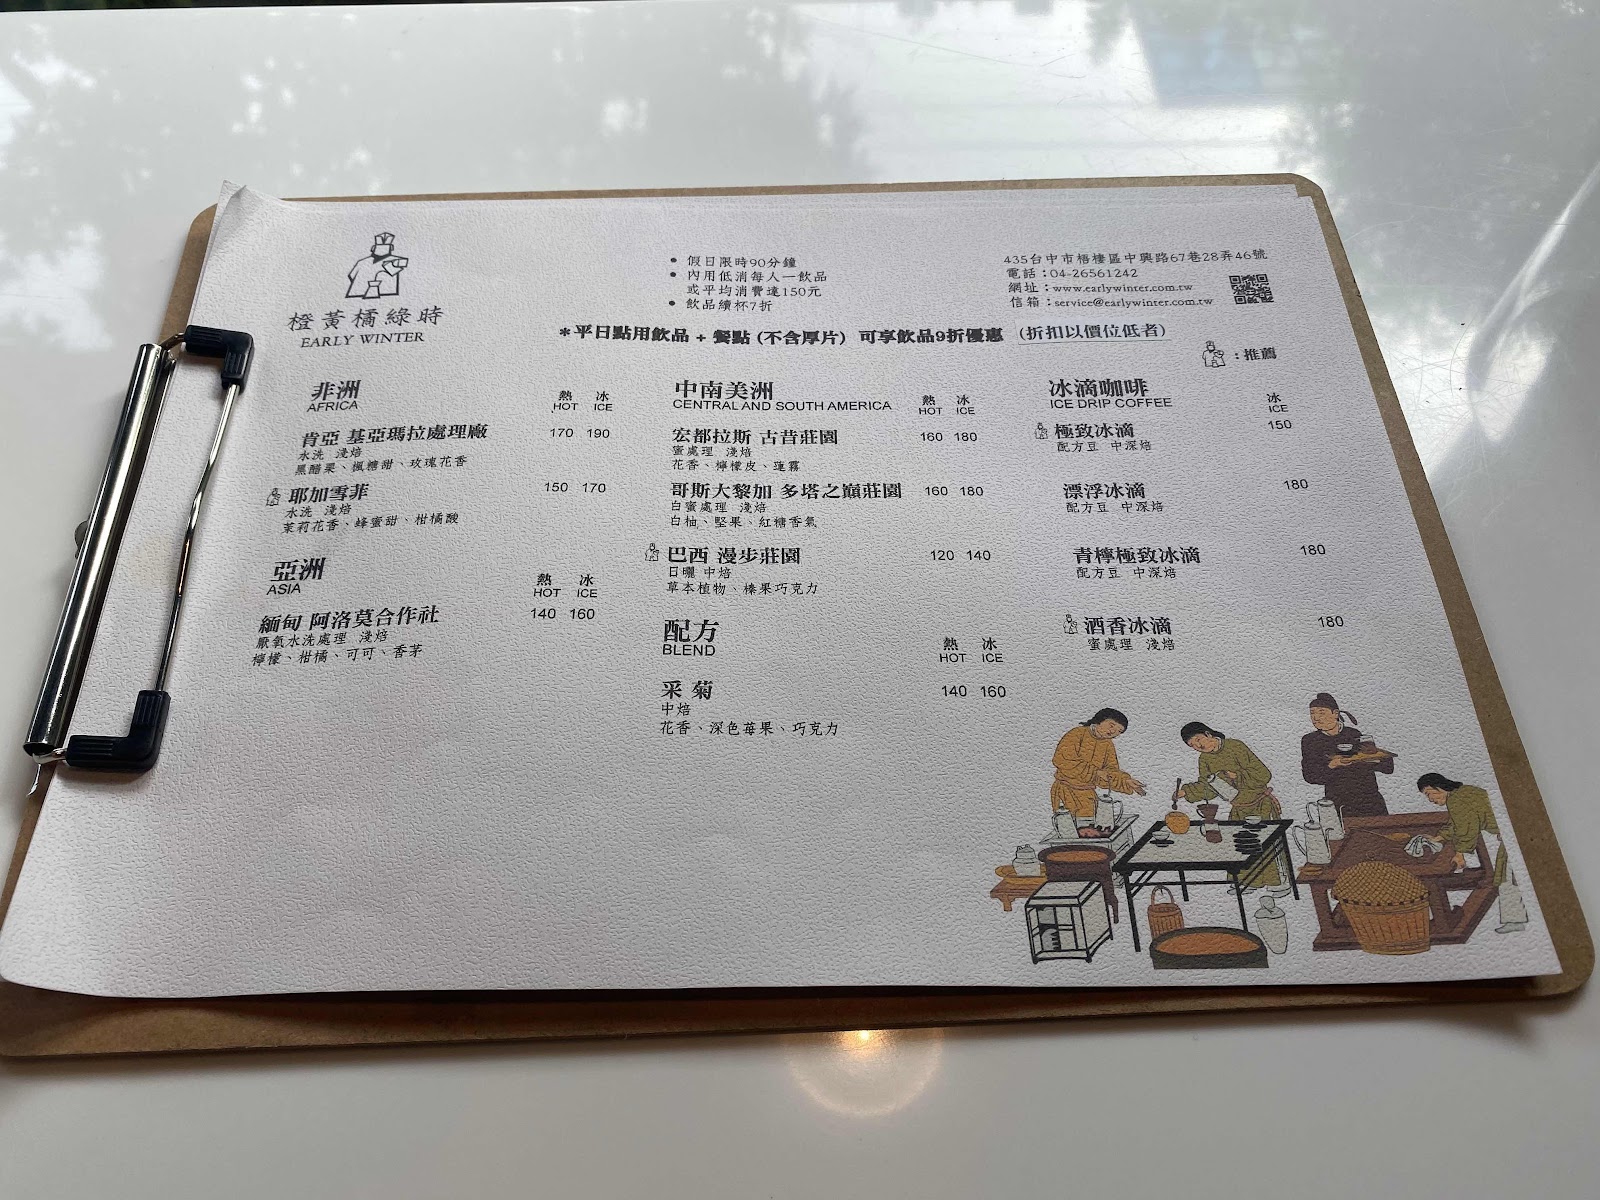 橙黃橘綠時
EARLY WINTER
• 假日限時90分鐘
• 內用低消每人一飲品
或平均消費達150元
• 飲品續杯7折
435台中市梧棲區中興路67巷28弄46號
電話：04-26561242
網址：www.earlywinter.com.tw
信箱：service@earlywinter.com.tw
＊平日點用飲品 + 餐點 (不含厚片) 可享飲品9折優惠 (折扣以價位低者)
：推薦
非洲
AFRICA
熱 冰
HOT ICE
肯亞 基亞瑪拉處理廠 170 190
水洗 淺焙
黑醋栗、楓糖甜、玫瑰花香
耶加雪菲 150 170
水洗 淺焙
茉莉花香、蜂蜜甜、柑橘酸
亞洲
ASIA
熱 冰
HOT ICE
緬甸 阿洛莫合作社 140 160
厭氧水洗處理 淺焙
檸檬、柑橘、可可、香茅
中南美洲
CENTRAL AND SOUTH AMERICA
熱 冰
HOT ICE
宏都拉斯 古昔莊園 160 180
蜜處理 淺焙
花香、檸檬皮、蓮霧
哥斯大黎加 多塔之巔莊園 160 180
白蜜處理 淺焙
白柚、堅果、紅糖香氣
巴西 漫步莊園 120 140
日曬 中焙
草本植物、榛果巧克力
配方
BLEND
熱 冰
HOT ICE
采菊 140 160
中焙
花香、深色莓果、巧克力
冰滴咖啡
ICE DRIP COFFEE
冰
ICE
極致冰滴 150
配方豆 中深焙
漂浮冰滴 180
配方豆 中深焙
青檸極致冰滴 180
配方豆 中深焙
酒香冰滴 180
蜜處理 淺焙